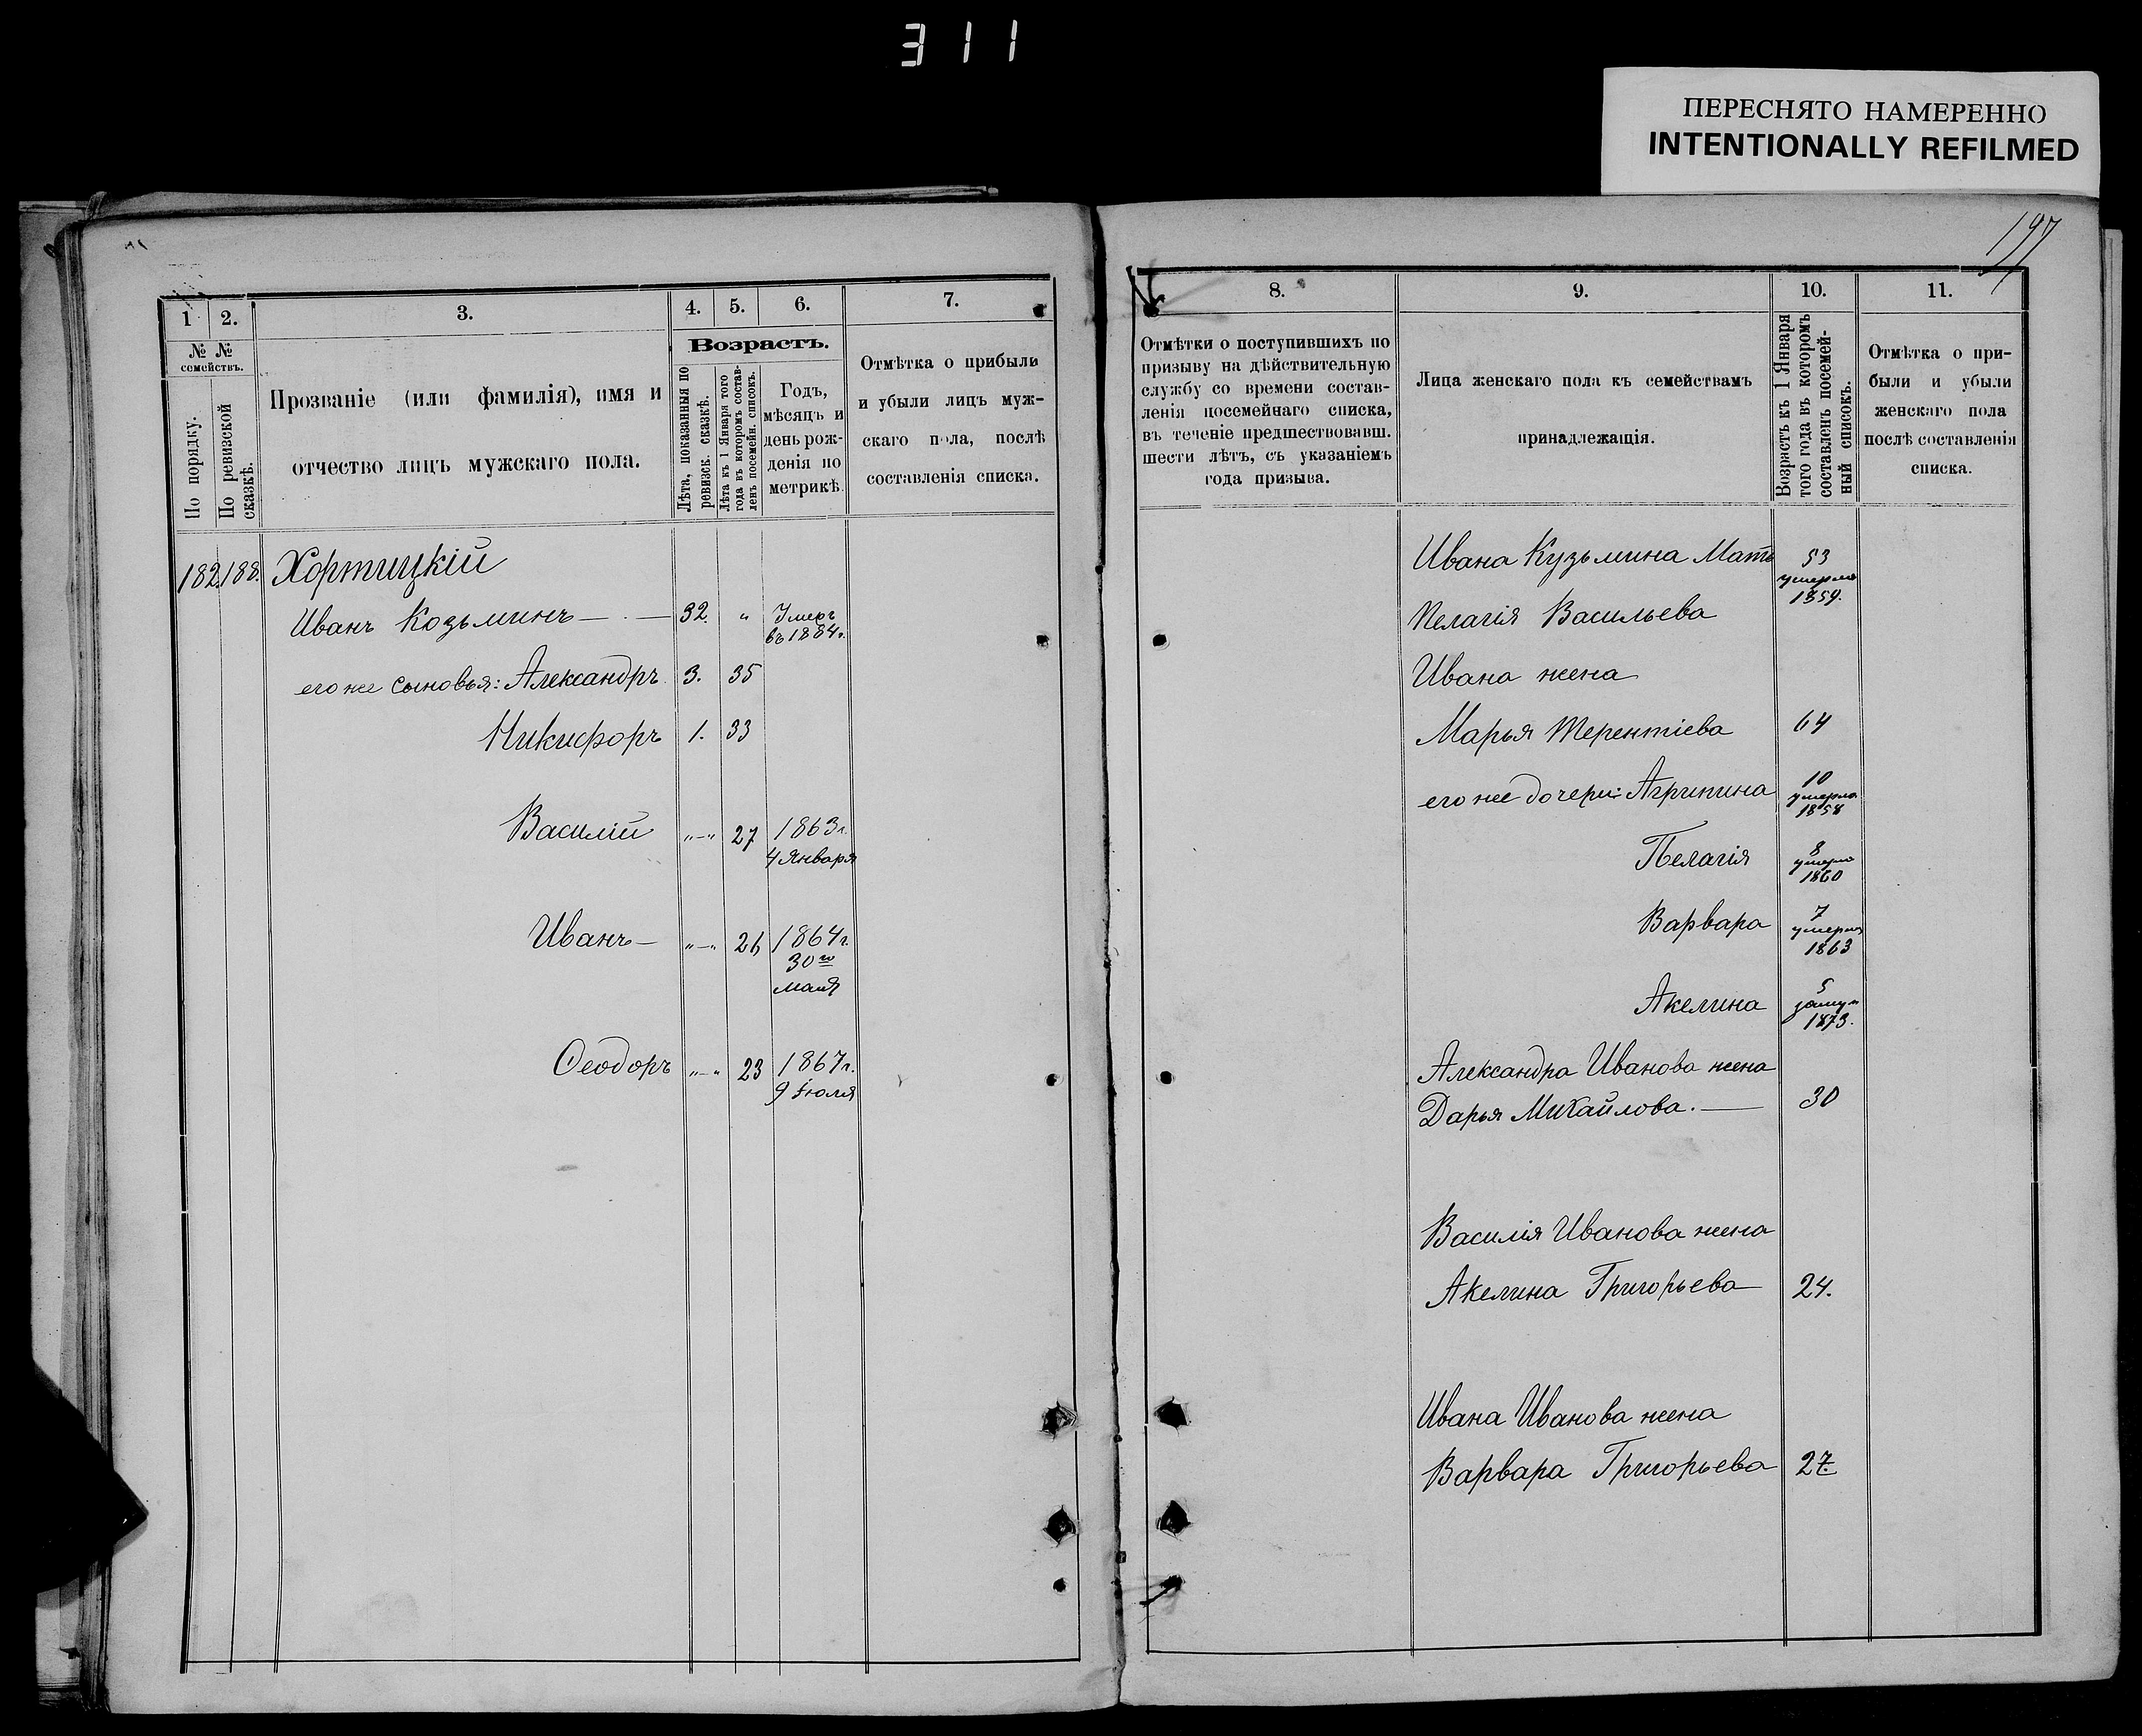 311
ПЕРЕСНЯТО НАМЕРЕННО
INTENTIONALLY REFILMED
197
1
2.
3.
4.
5.
6.
7.
№ №
семействъ.
По порядку.
По ревизской
сказкѣ.
Прозваніе (или фамилія), имя и
отчество лицъ мужскаго пола.
Возрастъ.
Лѣта, показанныя по
ревизск. сказкѣ.
Лѣта къ 1 Января того
года въ которомъ состав-
ленъ посемейн. списокъ.
Годъ,
мѣсяцъ и
день рож-
денія по
метрикѣ.
Отмѣтка о прибыли
и убыли лицъ муж-
скаго пола, послѣ
составленія списка.
182. 188. Хортицкій
Иванъ Козьминъ — 32. " Умеръ
въ 1884 г.
его же сыновья: Александръ 3. 35
Никифоръ 1. 33
Василій "—" 27 1863 г.
4 Января
Иванъ — "—" 26 1864 г.
30го
мая
Ѳеодоръ "—" 23 1867 г.
9 Іюля
8.
9.
10.
11.
Отмѣтки о поступившихъ по
призыву на дѣйствительную
службу со времени состав-
ленія посемейнаго списка,
въ теченіе предшествовавш.
шести лѣтъ, съ указаніемъ
года призыва.
Лица женскаго пола къ семействамъ
принадлежащія.
Возрастъ къ 1 Января
того года въ которомъ
составленъ посемей-
ный списокъ.
Отмѣтка о при-
были и убыли
женскаго пола
послѣ составленія
списка.
Ивана Кузьмина Мать 53
умерла
1859.
Пелагія Васильева
Ивана жена
Марья Терентіева 64
его же дочери: Агрипина 10
умерла
1858
Пелагія 8
умерла
1860
Варвара 7
умерла
1863
Акелина 5
замуж
1873.
Александра Иванова жена
Дарья Михайлова. — 30
Василія Иванова жена
Акелина Григорьева 24.
Ивана Иванова жена
Варвара Григорьева 27.